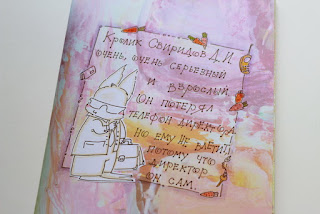 Кролик Свиридов Д.И.
очень, очень серьезный
и взрослый.
Он потерял
телефон директора.
Но ему не влетит,
потому что
директор
он сам.